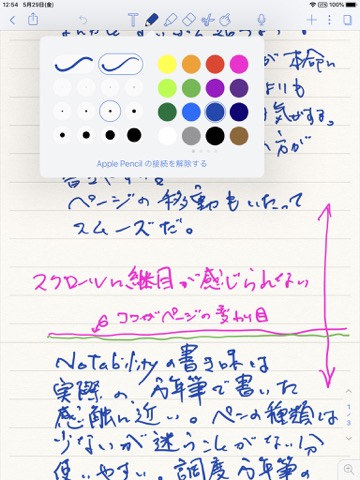 12:54 5月29日(金)
が本命い
よりも
気がする。
い方が
Apple Pencil の接続を解除する
書きやすい
ページの移動もいたって
スムーズだ。
スクロールに継目が感じられない
ココがページの変わり目
Notabilityの書き味は
実際の、万年筆で書いた
感触に近い。ペンの種類は
少ないが迷うことがない分
使いやすい。調度万年筆の
1
3